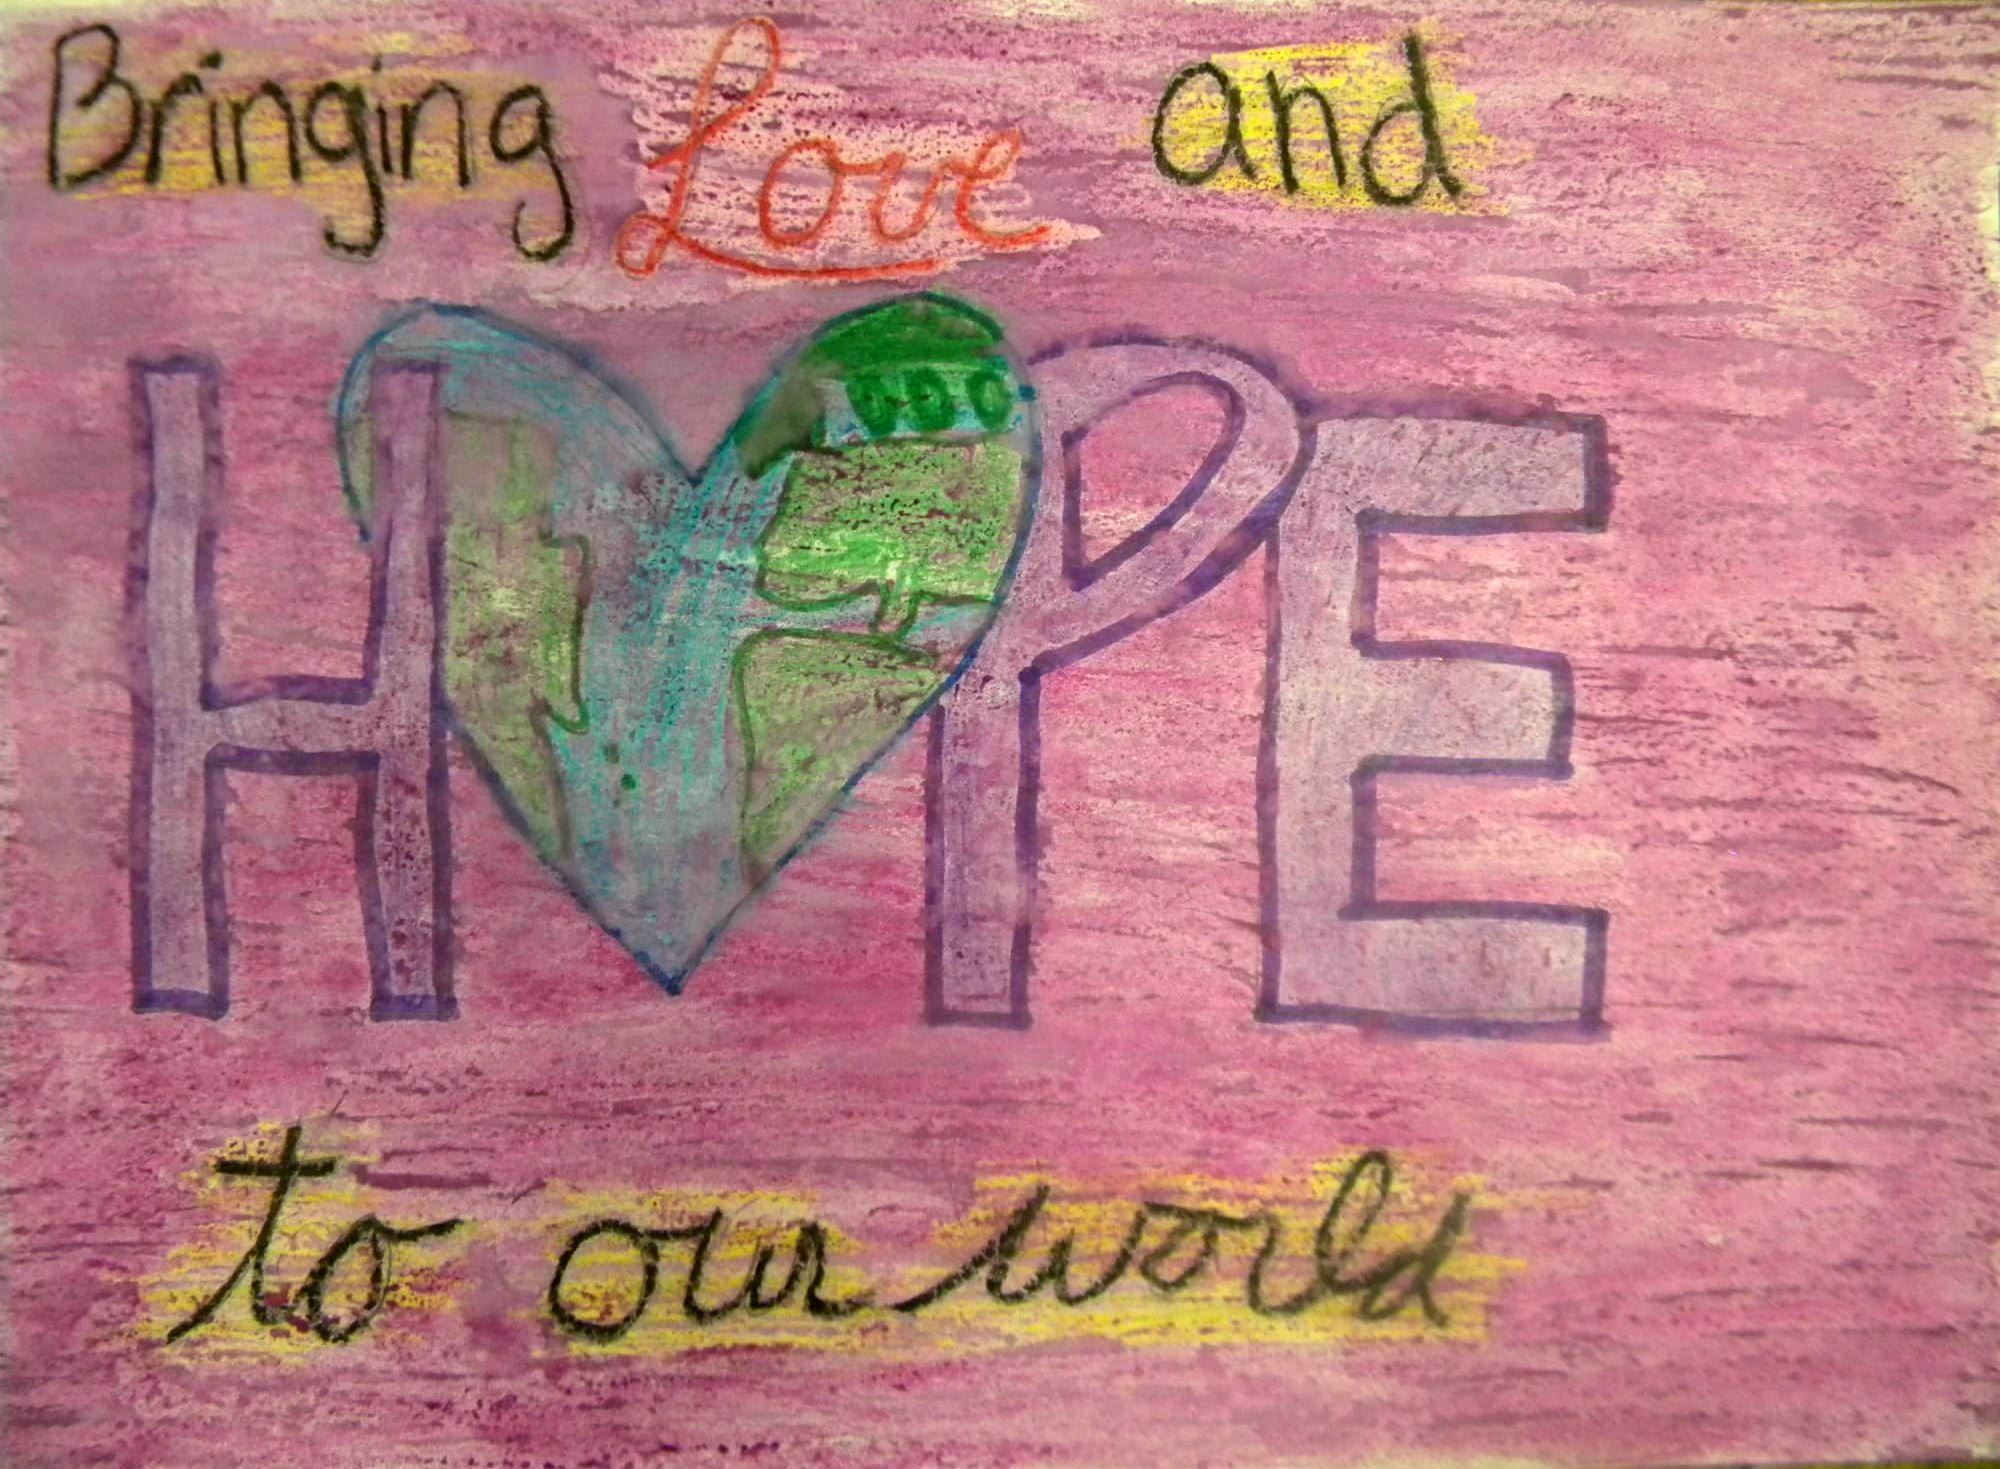 Bringing Love and
HOPE
to our world